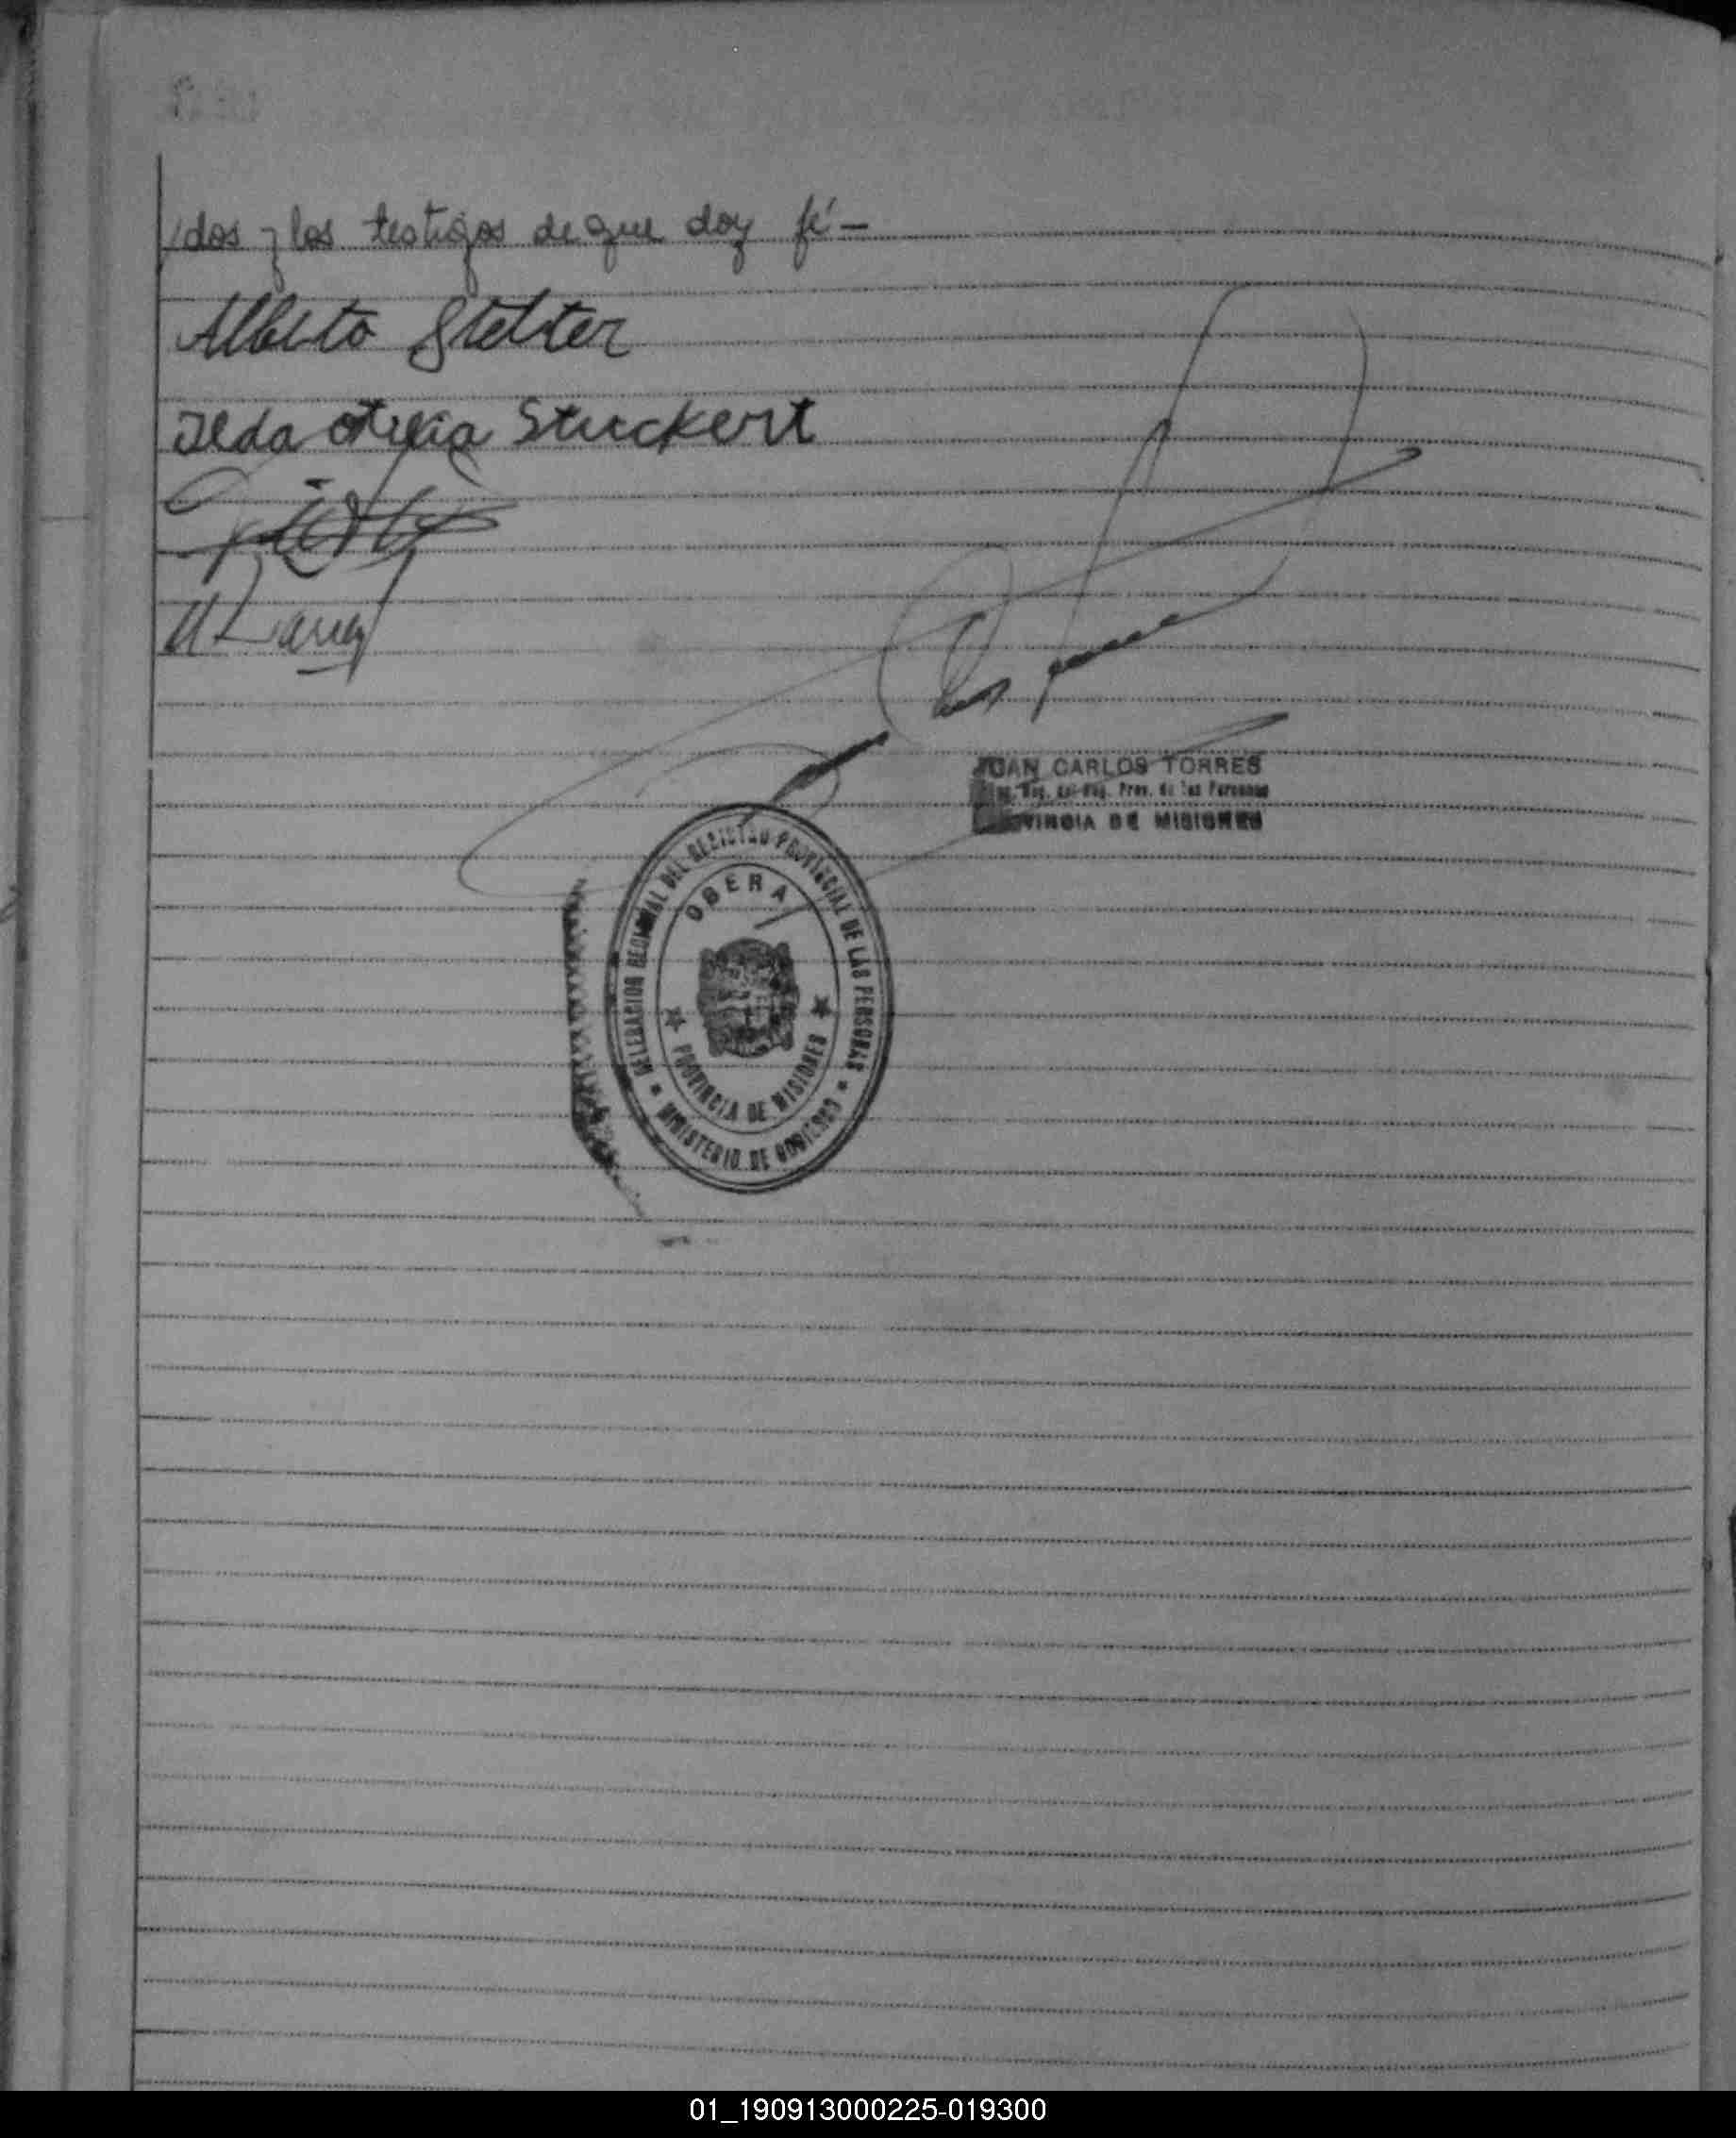 /dos y los testigos de que doy fé-
Alberto Stelter
Ilda Otilia Stuckert
JUAN CARLOS TORRES
Prov. de las Personas
PROVINCIA DE MISIONES
DELEGACION REGIONAL DEL REGISTRO PROVINCIAL DE LAS PERSONAS
OBERA
PROVINCIA DE MISIONES
MINISTERIO DE GOBIERNO
01_190913000225-019300